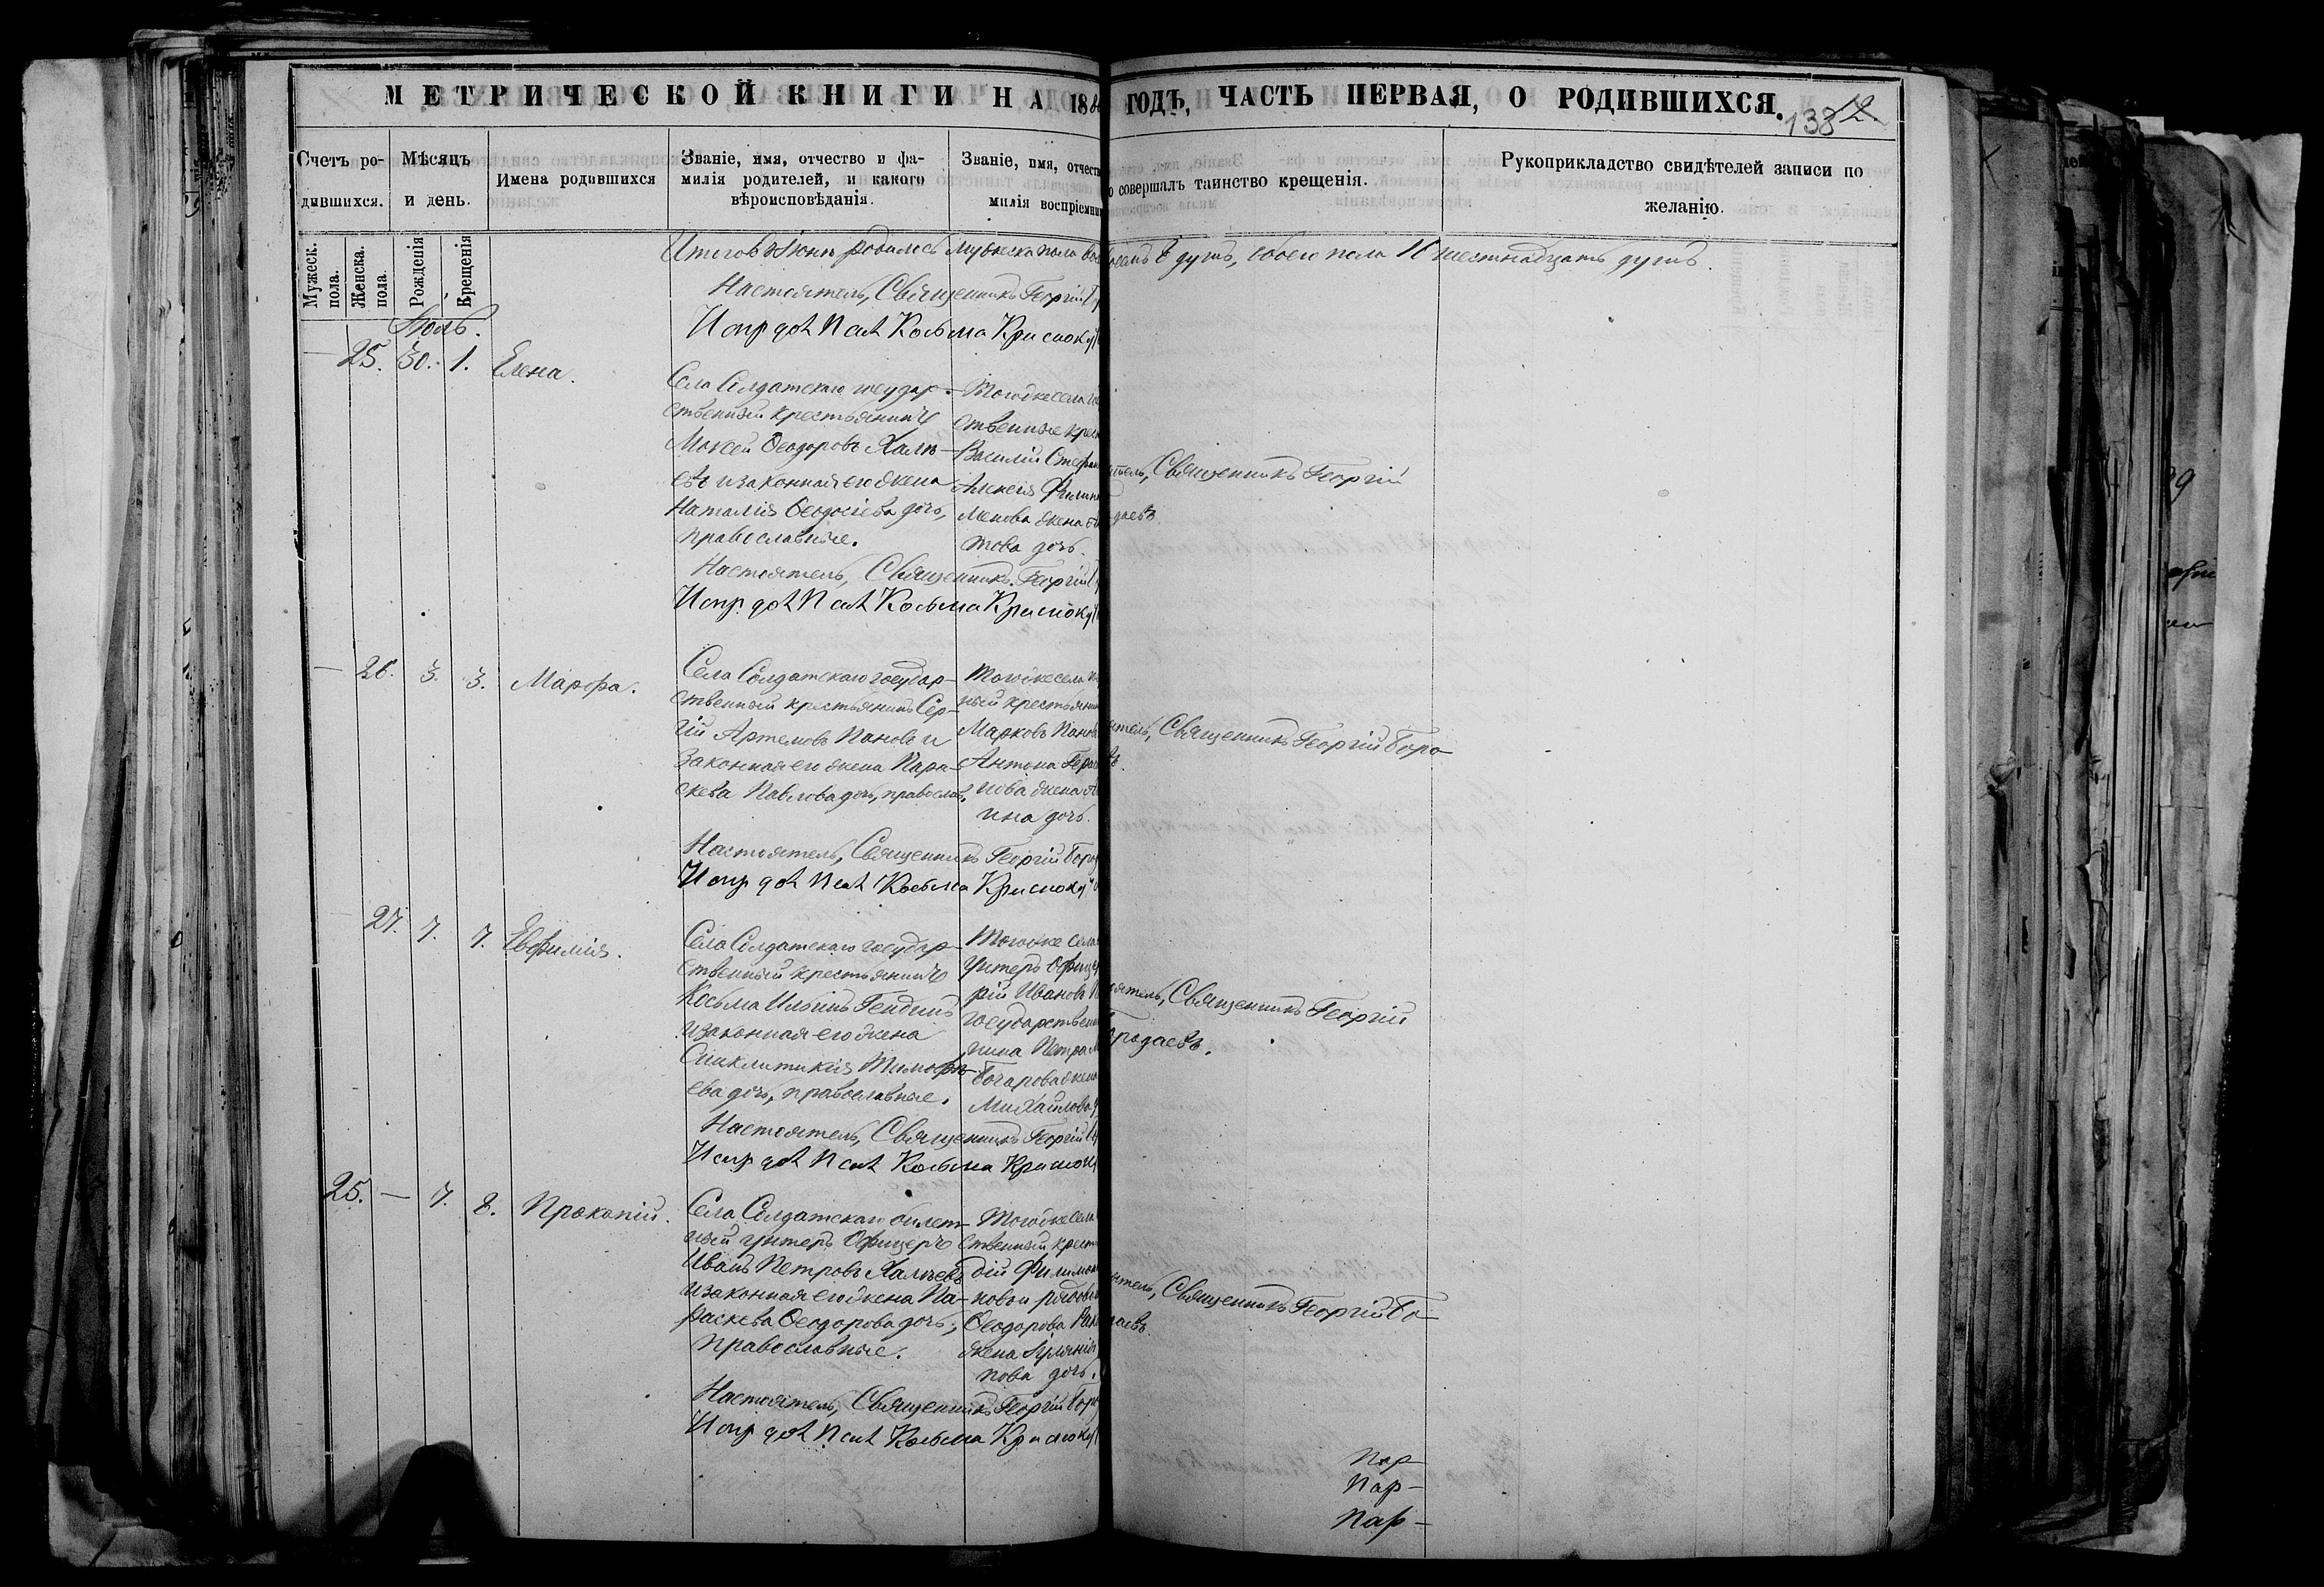 МЕТРИЧЕСКОЙ КНИГИ НА 18
ГОДЪ, ЧАСТЬ ПЕРВАЯ, О РОДИВШИХСЯ.
138
Счетъ ро-
дившихся.
Мѣсяцъ
и день.
Имена родившихся
Званіе, имя, отчество и фа-
милія родителей, и какого
вѣроисповѣданія.
Званіе, имя, отчест
милія воспріемни
о совершалъ таинство крещенія.
Рукоприкладство свидѣтелей записи по
желанію.
Мужеск.
пола.
Женска.
пола.
Рожденія
Крещенія
Итого въ Іюнѣ родилось мужеска пола
восемь 8 душъ, обоего пола 16 шестнадцать душъ.
Настоятель, Священникъ Георгій
Испр дол Псал Косьма
Іюль.
— 25. 30. 1. Елена.
Села Солдатскаго государ-
ственный крестьянинъ
Моисей Ѳеодоровъ Халѣ-
евъ и законная его жена
Наталія Ѳеодосіева дочь,
православные.
Тогоже села
ственные крес
Василій Стефан
Алексія Филип
жена
това дочь.
тель, Священникъ Георгій
даевъ
Настоятель, Священникъ Георгій
Испр. дол Псал Косьма
— 26. 3. 3. Марѳа.
Села Солдатскаго государ-
ственный крестьянинъ Сер-
гій Артемовъ Пановъ и
законная его жена Пара-
скева Павлова дочь, православ.
Тогоже села
ный крестьянин
Марковъ Панов
Антона
нова жена
ина дочь.
тель, Священникъ Георгій Боро-
въ.
Настоятель, Священникъ Георгій Боро
Испр дол Псал Косьма
— 27. 7. 7. Евфимія.
Села Солдатскаго государ-
ственный крестьянинъ
Косьма Ильинъ Гендинъ
и законная его жена
Синклитикія Тимофѣ-
ева дочь, православные.
Тогоже села
унтеръ Офице
рій Ивановъ
государствен
нина Петра
Бочарова жена
Михайлова
ятель, Священникъ Георгій
Бородаевъ.
Настоятель, Священникъ Георгій
Испр дол Псал Косьма
25. — 7. 8. Прокопій.
Села Солдатскаго билет-
ный унтеръ Офицеръ
Иванъ Петровъ Халѣевъ
и законная его жена Па-
раскева Ѳеодорова дочь,
православные.
Тогоже села
ственный крест
дій Филимон
новой рядовой
Ѳеодорова
жена
пова дочь.
тель, Священникъ Георгій Бо-
даевъ
Настоятель, Священникъ Георгій Боро
Испр дол Псал Косьма
Пар-
Пар-
Пар-